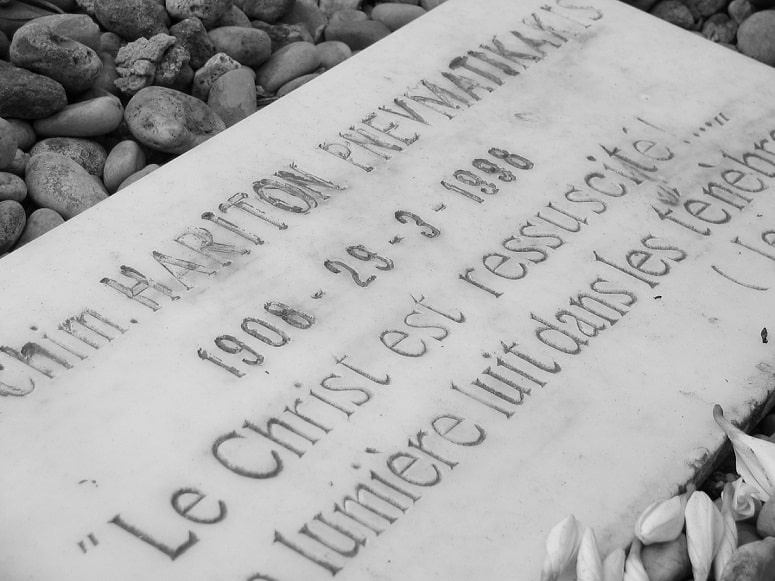 chim. HARITON PNEVMATIKAKIS
1906 - 29 - 3 - 1998
" Le Christ est ressuscité! ... "
lumière luit dans les ténèbre